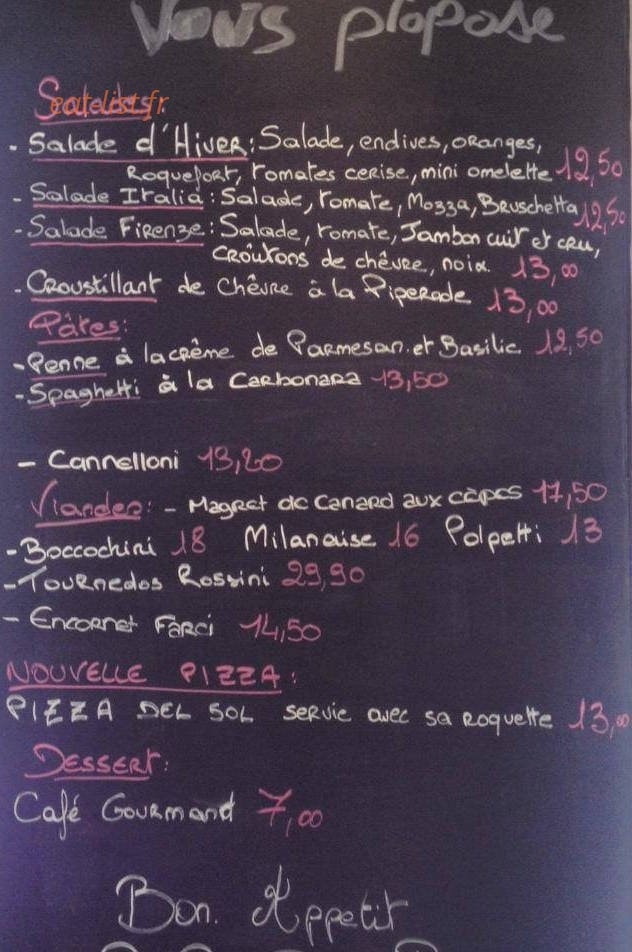 Vous propose
Salades:
eatelist.fr
- Salade d'Hiver: Salade, endives, oranges,
Roquefort, tomates cerise, mini omelette 12,50
- Salade Italia: Salade, tomate, Mozza, Bruschetta 12,50
- Salade Firenze: Salade, tomate, Jambon cuit et cru,
Croûtons de chêvre, noix. 13,00
- Croustillant de Chêvre à la Piperade 13,00
Pâtes:
- Penne à la crême de Parmesan. et Basilic 12,50
- Spaghetti à la Carbonara 13,50
- Cannelloni 13,20
Viandes: - Magret de Canard aux cèpes 17,50
- Boccochini 18 Milanaise 16 Polpetti 13
- Tournedos Rossini 29,90
- Encornet Farci 14,50
NOUVELLE PIZZA:
PIZZA DEL SOL servie avec sa roquette 13,00
Dessert:
Café Gourmand 7,00
Bon. Appetit